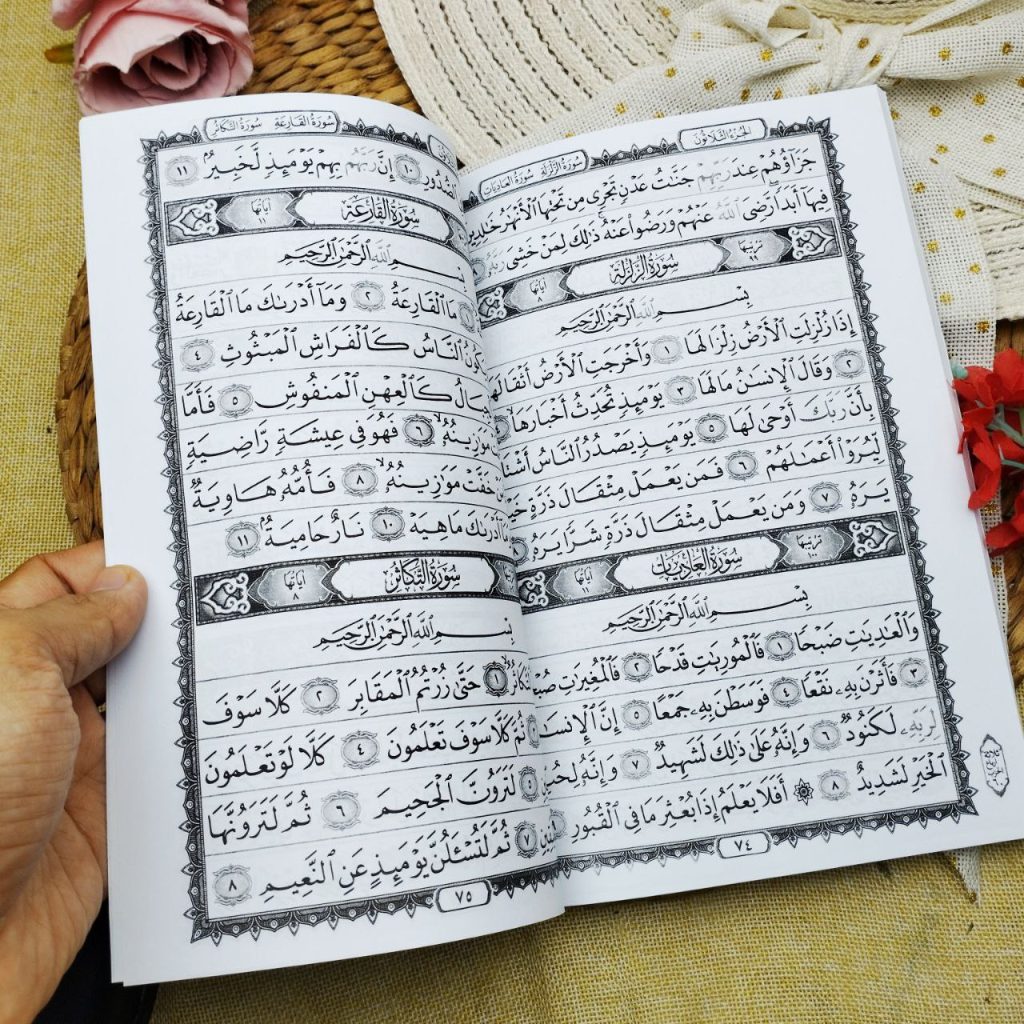 الجُزْءُ الثَّلَاثُونَ
سُورَةُ الزَّلْزَلَة سُورَةُ العَادِيَات
جَزَآؤُهُمْ عِندَ رَبِّهِمْ جَنَّٰتُ عَدْنٍ تَجْرِى مِن تَحْتِهَا ٱلْأَنْهَٰرُ خَٰلِدِينَ
فِيهَآ أَبَدًا رَّضِىَ ٱللَّهُ عَنْهُمْ وَرَضُوا۟ عَنْهُ ذَٰلِكَ لِمَنْ خَشِىَ رَبَّهُۥ
ترتيبها ٩٩ سُورَةُ الزَّلْزَلَة آياتها ٨
بِسْمِ ٱللَّهِ ٱلرَّحْمَٰنِ ٱلرَّحِيمِ
إِذَا زُلْزِلَتِ ٱلْأَرْضُ زِلْزَالَهَا ١ وَأَخْرَجَتِ ٱلْأَرْضُ أَثْقَالَهَا
٢ وَقَالَ ٱلْإِنسَٰنُ مَا لَهَا ٣ يَوْمَئِذٍ تُحَدِّثُ أَخْبَارَهَا ٤
بِأَنَّ رَبَّكَ أَوْحَىٰ لَهَا ٥ يَوْمَئِذٍ يَصْدُرُ ٱلنَّاسُ
لِّيُرَوْا۟ أَعْمَٰلَهُمْ ٦ فَمَن يَعْمَلْ مِثْقَالَ ذَرَّةٍ
يَرَهُۥ ٧ وَمَن يَعْمَلْ مِثْقَالَ ذَرَّةٍ شَرًّا يَرَهُۥ ٨
ترتيبها ١٠٠ سُورَةُ العَادِيَات آياتها ١١
بِسْمِ ٱللَّهِ ٱلرَّحْمَٰنِ ٱلرَّحِيمِ
وَٱلْعَٰدِيَٰتِ ضَبْحًا ١ فَٱلْمُورِيَٰتِ قَدْحًا ٢ فَٱلْمُغِيرَٰتِ
٣ فَأَثَرْنَ بِهِۦ نَقْعًا ٤ فَوَسَطْنَ بِهِۦ جَمْعًا ٥ إِنَّ ٱلْإِنسَٰنَ
لِرَبِّهِۦ لَكَنُودٌ ٦ وَإِنَّهُۥ عَلَىٰ ذَٰلِكَ لَشَهِيدٌ ٧ وَإِنَّهُۥ لِحُبِّ
ٱلْخَيْرِ لَشَدِيدٌ ٨ ۞ أَفَلَا يَعْلَمُ إِذَا بُعْثِرَ مَا فِى ٱلْقُبُورِ
٧٤
سُورَةُ القَارِعَةِ سُورَةُ التَّكَاثُر
١٠ إِنَّ رَبَّهُم بِهِمْ يَوْمَئِذٍ لَّخَبِيرٌۢ ١١
سُورَةُ القَارِعَة آياتها ١١
بِسْمِ ٱللَّهِ ٱلرَّحْمَٰنِ ٱلرَّحِيمِ
مَا ٱلْقَارِعَةُ ٢ وَمَآ أَدْرَىٰكَ مَا ٱلْقَارِعَةُ
يَكُونُ ٱلنَّاسُ كَٱلْفَرَاشِ ٱلْمَبْثُوثِ ٤
ٱلْجِبَالُ كَٱلْعِهْنِ ٱلْمَنفُوشِ ٥ فَأَمَّا
مَوَٰزِينُهُۥ ٦ فَهُوَ فِى عِيشَةٍ رَّاضِيَةٍ
خَفَّتْ مَوَٰزِينُهُۥ ٨ فَأُمُّهُۥ هَاوِيَةٌ
أَدْرَىٰكَ مَا هِيَهْ ١٠ نَارٌ حَامِيَةٌۢ ١١
ترتيبها سُورَةُ التَّكَاثُر آياتها ٨
بِسْمِ ٱللَّهِ ٱلرَّحْمَٰنِ ٱلرَّحِيمِ
ٱلتَّكَاثُرُ ١ حَتَّىٰ زُرْتُمُ ٱلْمَقَابِرَ ٢ كَلَّا سَوْفَ
ثُمَّ كَلَّا سَوْفَ تَعْلَمُونَ ٤ كَلَّا لَوْ تَعْلَمُونَ
٥ لَتَرَوُنَّ ٱلْجَحِيمَ ٦ ثُمَّ لَتَرَوُنَّهَا
٧ ثُمَّ لَتُسْـَٔلُنَّ يَوْمَئِذٍ عَنِ ٱلنَّعِيمِ ٨
٧٥